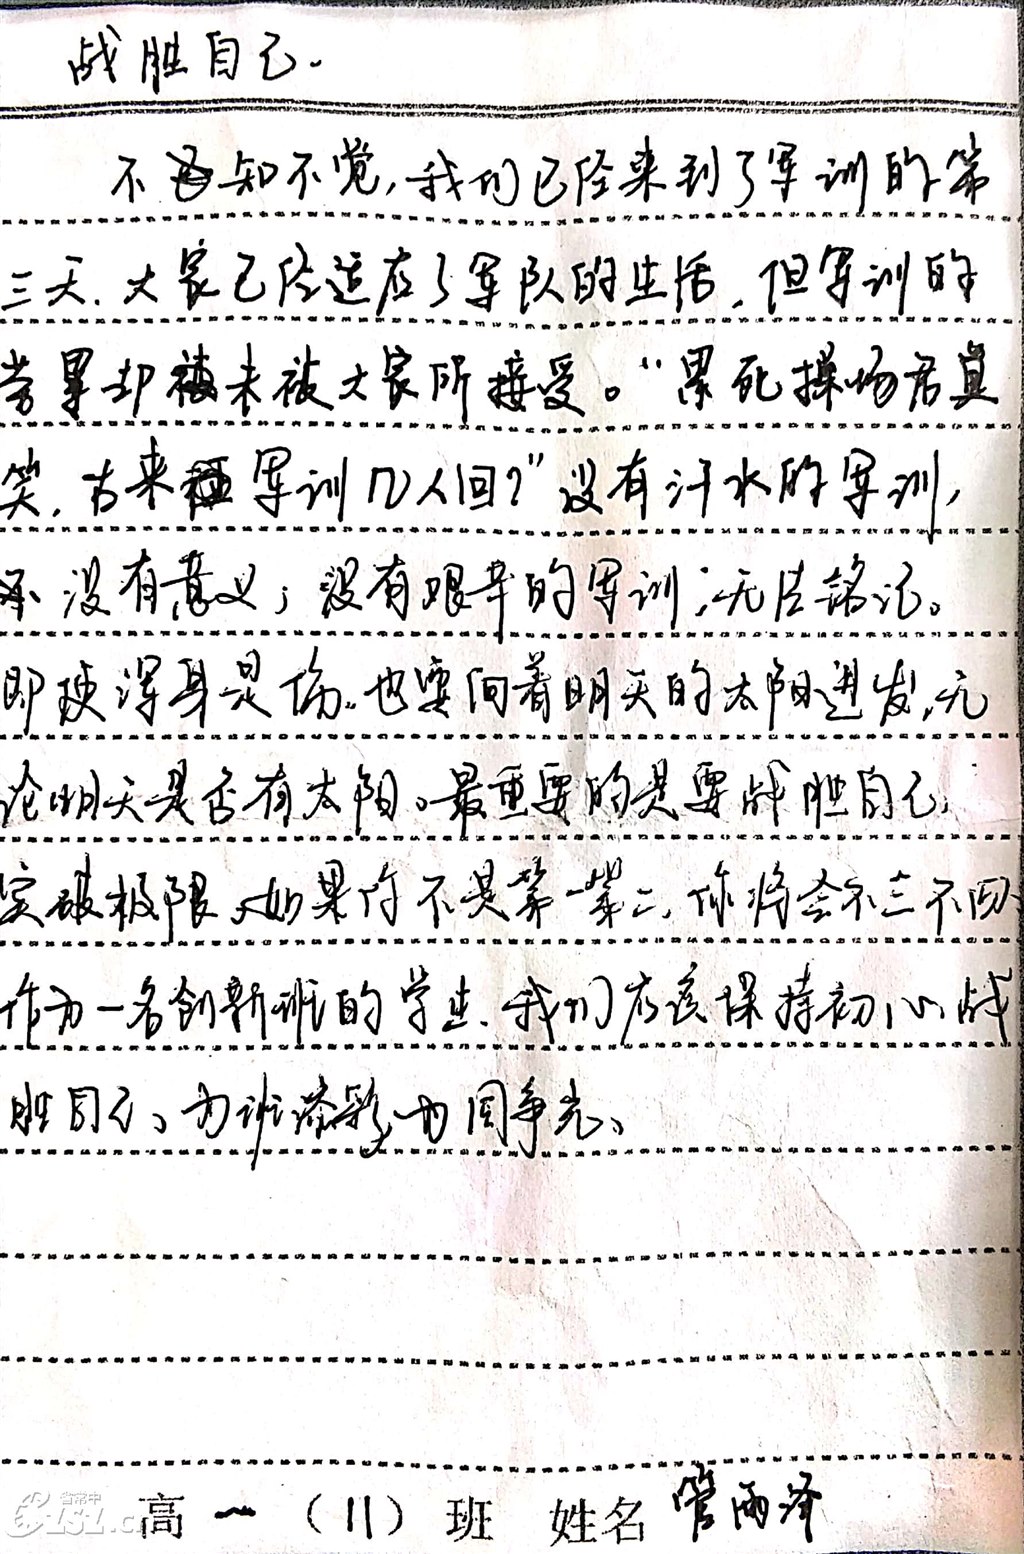 战胜自己.
不知不觉,我们已经来到了军训的第
三天.大家已经适应了军队的生活,但军训的
劳累却未被大家所接受。“累死操场君莫
笑,古来军训几人回?”没有汗水的军训,
没有意义;没有艰辛的军训,无法铭记。
即使浑身是伤。也要向着明天的太阳进发,无
论明天是否有太阳。最重要的是要战胜自己,
突破极限、如果你不是第一第二,你将会不三不四
作为一名创新班的学生、我们应该保持初心、战
胜自己、为班添彩、为国争光、
高一(11)班 姓名 管雨泽
省常中